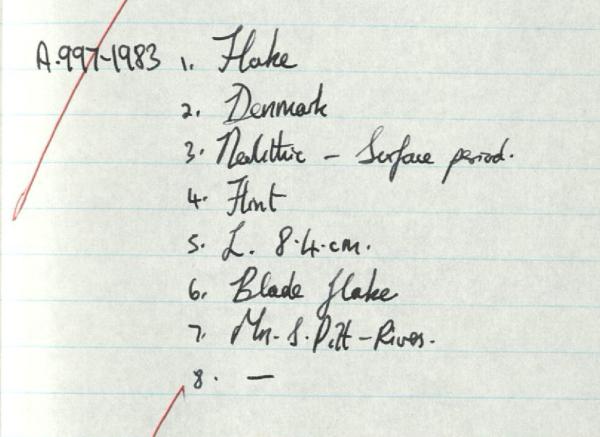 A.997-1983 1. Flake
2. Denmark
3. Neolithic - Surface period.
4. Flint
5. L. 8.4.cm.
6. Blade flake
7. Mr. S. Pitt-Rivers.
8. —